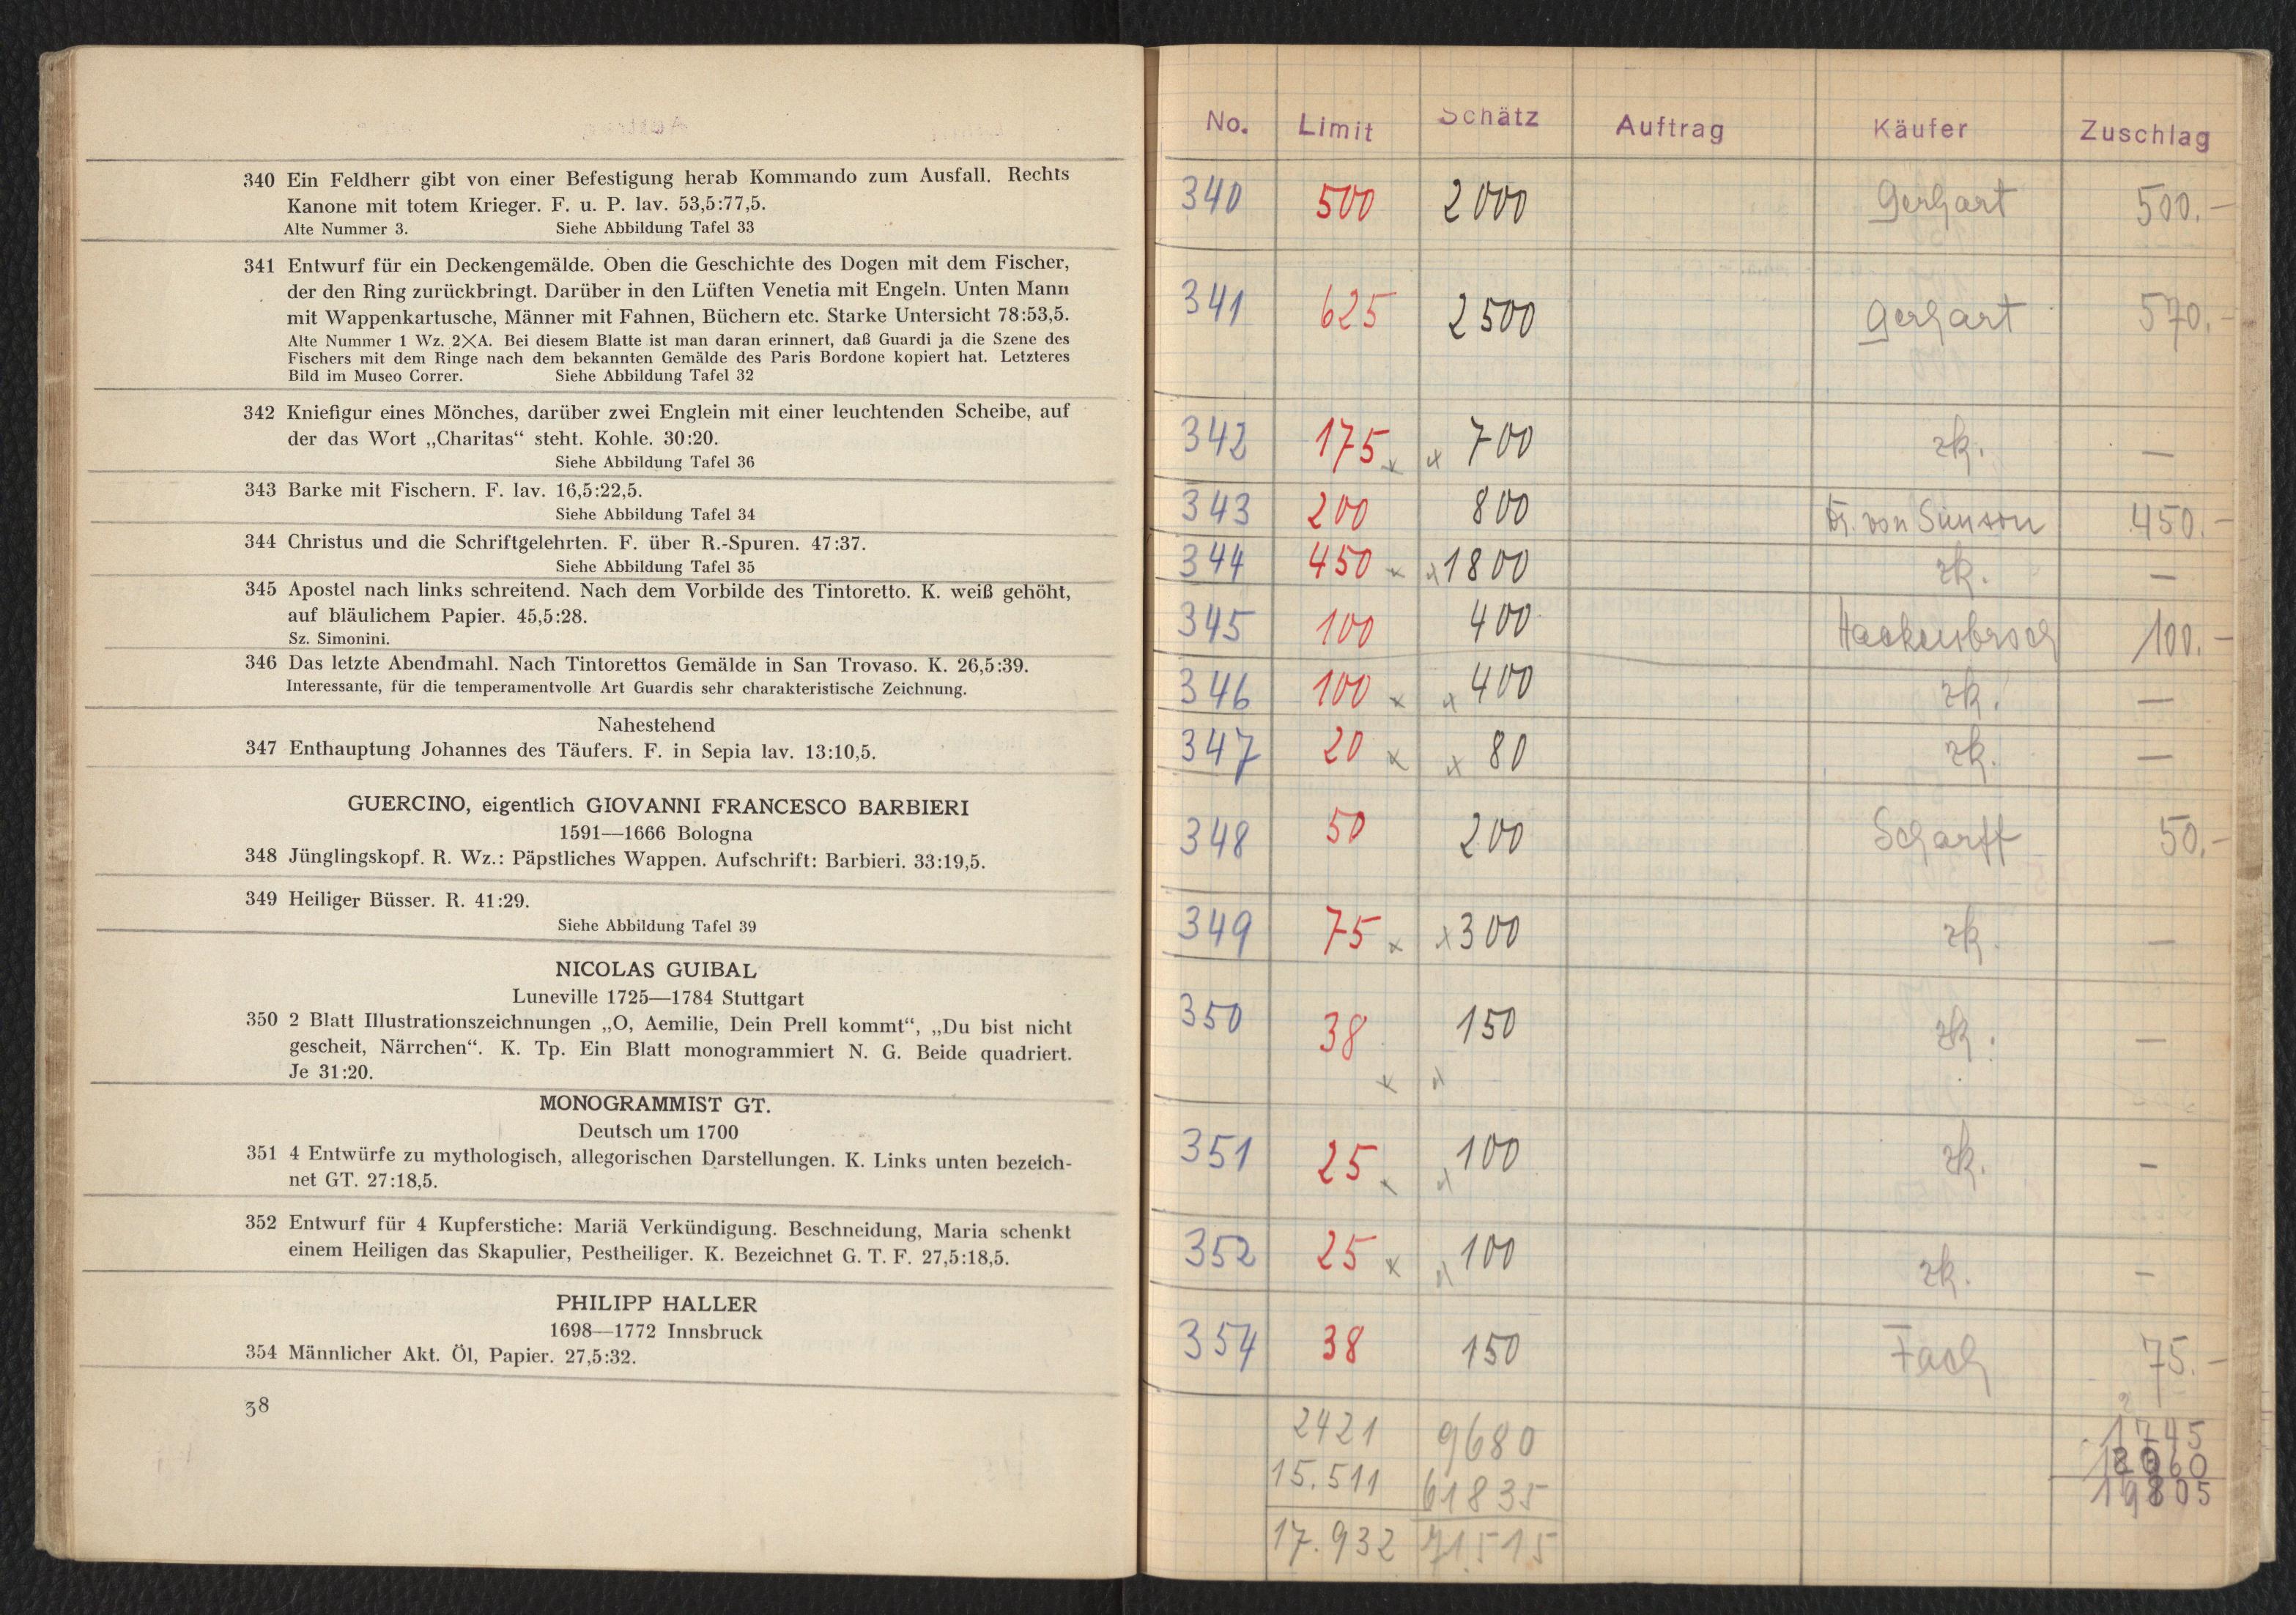 340 Ein Feldherr gibt von einer Befestigung herab Kommando zum Ausfall. Rechts
Kanone mit totem Krieger. F. u. P. lav. 53,5:77,5.
Alte Nummer 3. Siehe Abbildung Tafel 33
341 Entwurf für ein Deckengemälde. Oben die Geschichte des Dogen mit dem Fischer,
der den Ring zurückbringt. Darüber in den Lüften Venetia mit Engeln. Unten Mann
mit Wappenkartusche, Männer mit Fahnen, Büchern etc. Starke Untersicht 78:53,5.
Alte Nummer 1 Wz. 2XA. Bei diesem Blatte ist man daran erinnert, daß Guardi ja die Szene des
Fischers mit dem Ringe nach dem bekannten Gemälde des Paris Bordone kopiert hat. Letzteres
Bild im Museo Correr. Siehe Abbildung Tafel 32
342 Kniefigur eines Mönches, darüber zwei Englein mit einer leuchtenden Scheibe, auf
der das Wort „Charitas“ steht. Kohle. 30:20.
Siehe Abbildung Tafel 36
343 Barke mit Fischern. F. lav. 16,5:22,5.
Siehe Abbildung Tafel 34
344 Christus und die Schriftgelehrten. F. über R.-Spuren. 47:37.
Siehe Abbildung Tafel 35
345 Apostel nach links schreitend. Nach dem Vorbilde des Tintoretto. K. weiß gehöht,
auf bläulichem Papier. 45,5:28.
Sz. Simonini.
346 Das letzte Abendmahl. Nach Tintorettos Gemälde in San Trovaso. K. 26,5:39.
Interessante, für die temperamentvolle Art Guardis sehr charakteristische Zeichnung.
Nahestehend
347 Enthauptung Johannes des Täufers. F. in Sepia lav. 13:10,5.
GUERCINO, eigentlich GIOVANNI FRANCESCO BARBIERI
1591—1666 Bologna
348 Jünglingskopf. R. Wz.: Päpstliches Wappen. Aufschrift: Barbieri. 33:19,5.
349 Heiliger Büsser. R. 41:29.
Siehe Abbildung Tafel 39
NICOLAS GUIBAL
Luneville 1725—1784 Stuttgart
350 2 Blatt Illustrationszeichnungen „O, Aemilie, Dein Prell kommt“, „Du bist nicht
gescheit, Närrchen“. K. Tp. Ein Blatt monogrammiert N. G. Beide quadriert.
Je 31:20.
MONOGRAMMIST GT.
Deutsch um 1700
351 4 Entwürfe zu mythologisch, allegorischen Darstellungen. K. Links unten bezeich-
net GT. 27:18,5.
352 Entwurf für 4 Kupferstiche: Mariä Verkündigung. Beschneidung, Maria schenkt
einem Heiligen das Skapulier, Pestheiliger. K. Bezeichnet G. T. F. 27,5:18,5.
PHILIPP HALLER
1698—1772 Innsbruck
354 Männlicher Akt. Öl, Papier. 27,5:32.
38
No. Limit Schätz Auftrag Käufer Zuschlag
340 500 2000 Gerhart 500.—
341 625 2500 Gerhart 570.—
342 175 x x 700 zk. —
343 200 800 Dr. von Simson 450.—
344 450 x x 1800 zk. —
345 100 400 Hackenbroch 100.—
346 100 x x 400 zk. —
347 20 x x 80 zk. —
348 50 200 Scharff 50.—
349 75 x x 300 zk. —
350 38 x x 150 zk. —
351 25 x x 100 zk. —
352 25 x x 100 zk. —
354 38 150 Fach 75.—
2421 9680 1745
15.511 61835
17.932 71515 19805